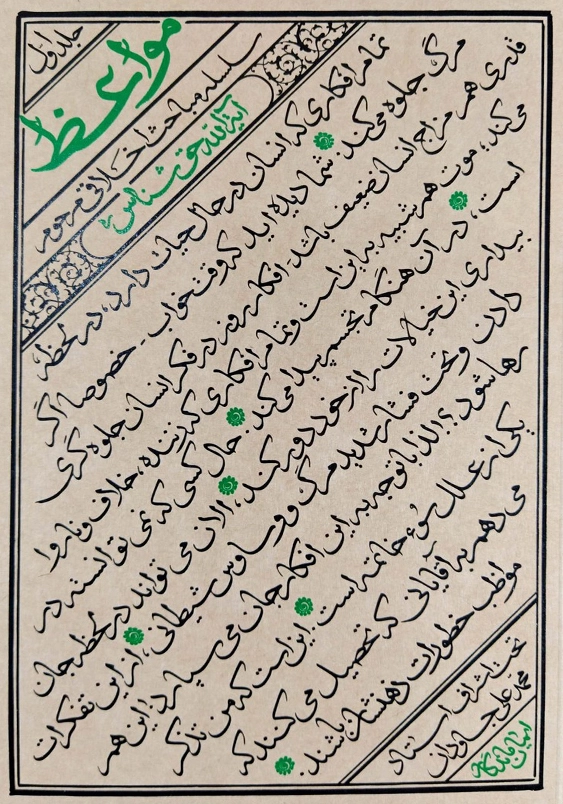 جلد اول
مواعظ
سلسله مباحث اخلاقی مرحوم
آیة الله حق شناس ره
تمام افکاری که انسان در حال حیات دارد، در لحظهٔ
مرگ جلوه می‌کند. شما دیده‌اید که وقت خواب - خصوصا اگر
قدری هم مزاج انسان ضعیف باشد - افکار روز در فکر انسان جلوه گری
می‌کند؛ موت هم شبیه به این است و تمام افکاری که زننده، خلاف و ناروا
است، در آن هنگام تجسم پیدا می‌کند. حال کسی که نمی توانسته در
بیداری این خیالات را از خود دور کند، الان می تواند در لحظه جان
دادن و تحت فشار شدید مرگ و وساوس شیطانی، از این تفکرات
رها شود؟! لذا با توجه به این افکار جان می سپارد؛ این هم
یکی از علل سوء خاتمه است. این است که من تذکر
می دهم به آقایانی که تحصیل می کنند که
مواظب خطورات ذهنشان باشند.
تحت اشراف استاد
محمد علی جاودان